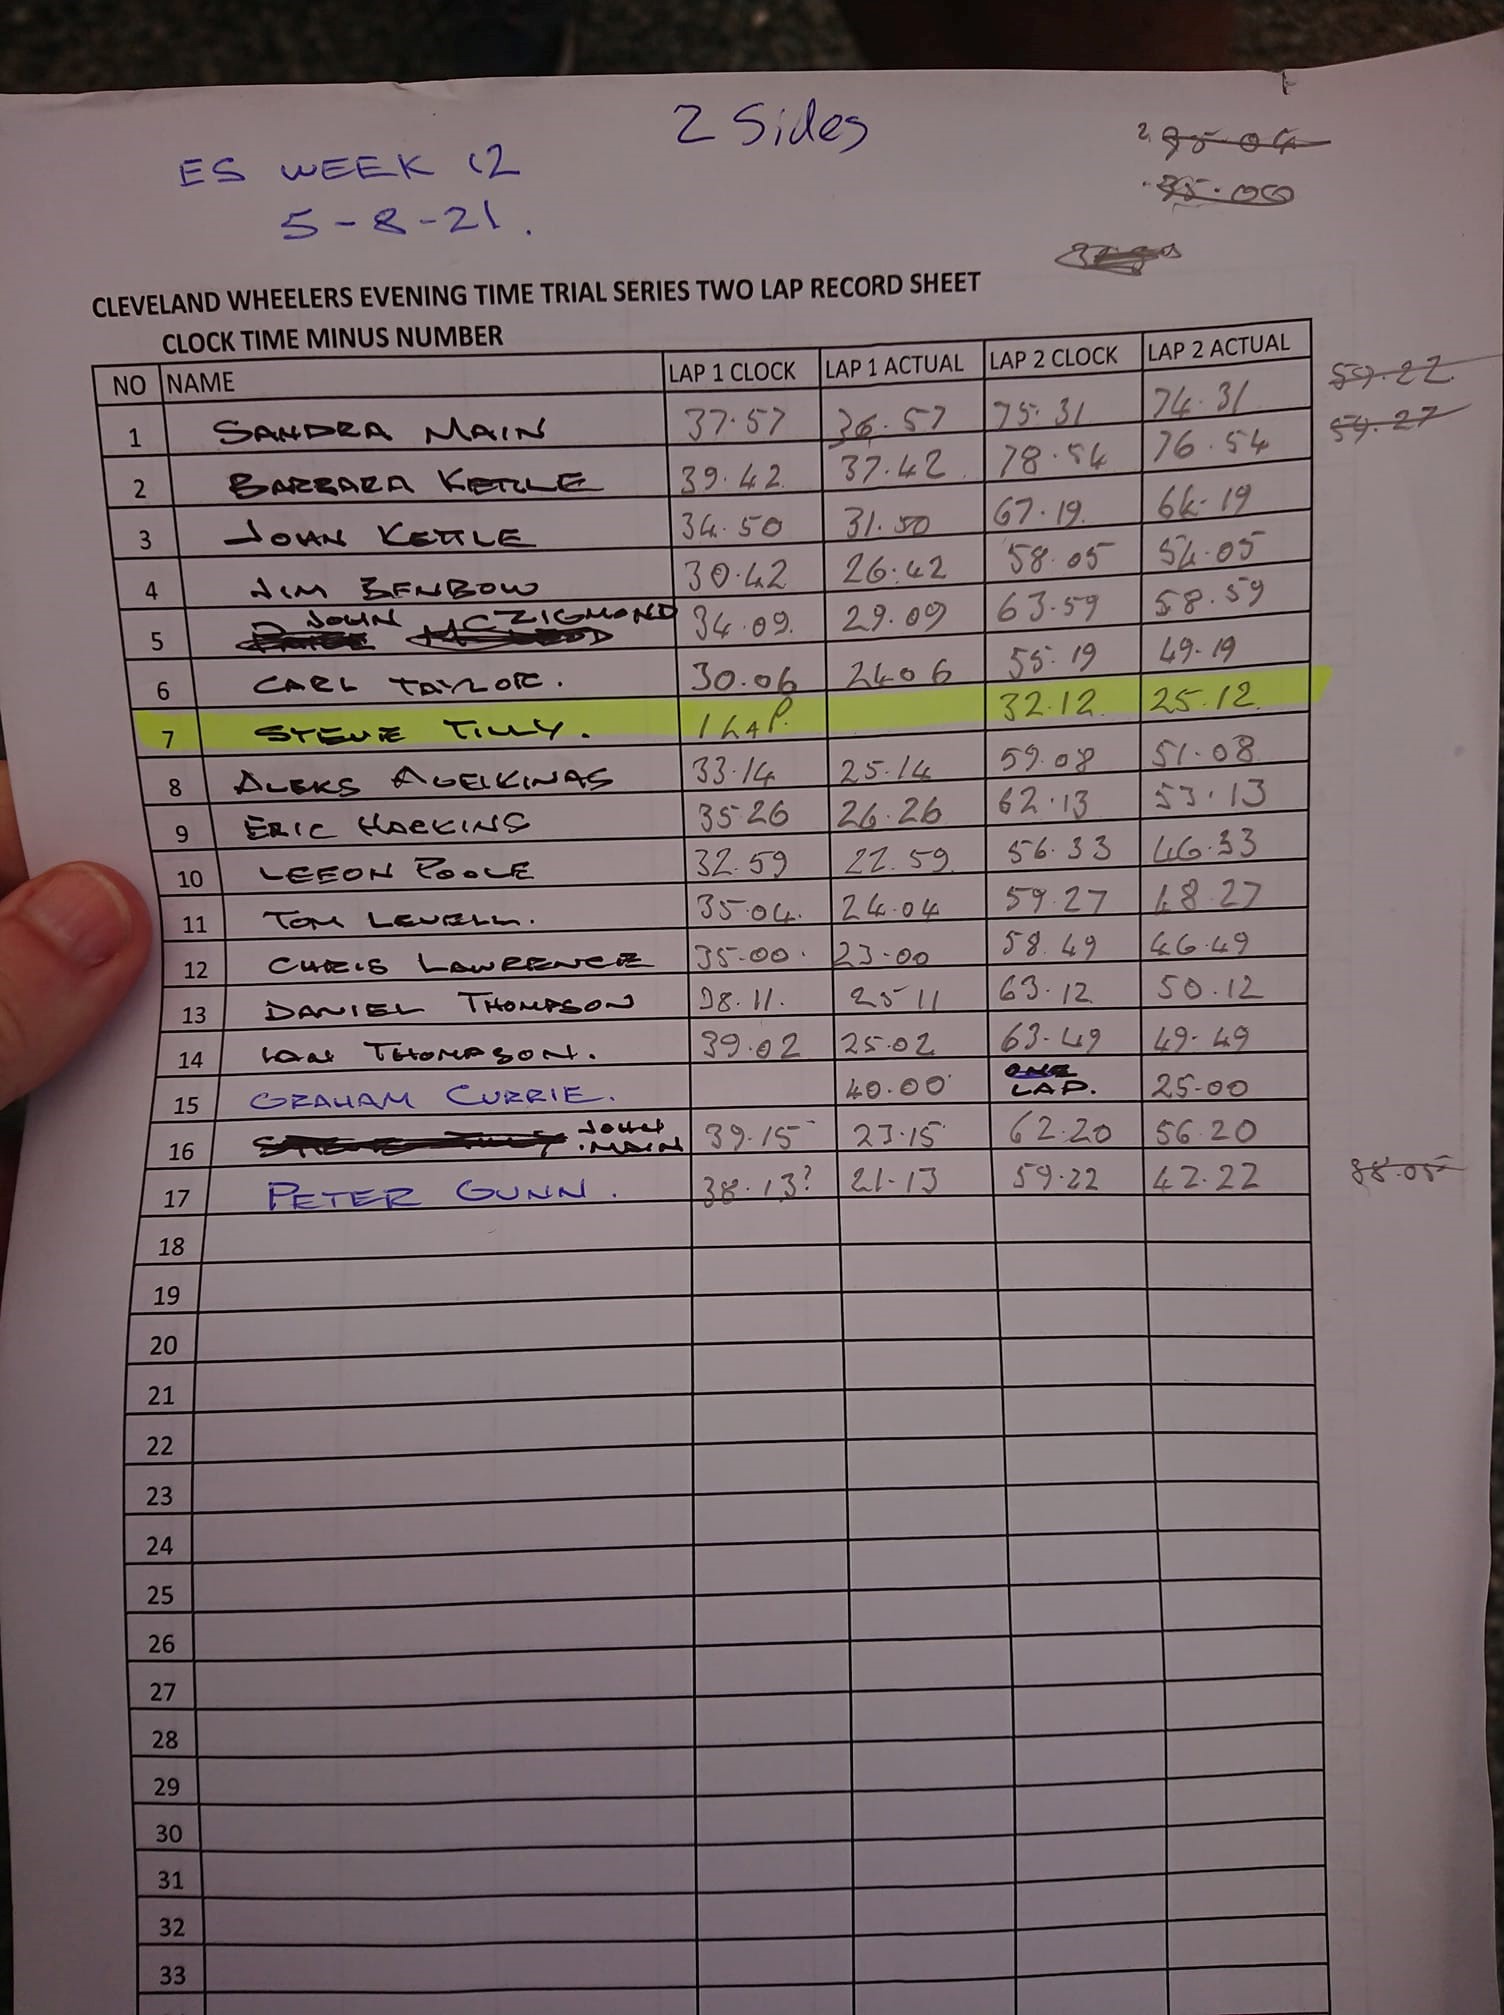 2 Sides
ES WEEK 12
5-8-21.
2. 35-04
35.00
CLEVELAND WHEELERS EVENING TIME TRIAL SERIES TWO LAP RECORD SHEET
CLOCK TIME MINUS NUMBER
NO NAME LAP 1 CLOCK LAP 1 ACTUAL LAP 2 CLOCK LAP 2 ACTUAL
59.22
59.27
1 SANDRA MAIN 37.57 36.57 75.31 74.31
2 BARBARA KETTLE 39.42 37.42 78.54 76.54
3 JOHN KETTLE 34.50 31.50 67.19 64.19
4 JIM BENBOW 30.42 26.42 58.05 54.05
5 JOHN MCZIGMOND 34.09 29.09 63.59 58.59
6 CARL TAYLOR. 30.06 24.06 55.19 49.19
7 STEVE TILLY. 1 LAP. 32.12 25.12
8 ALEKS 33.14 25.14 59.08 51.08
9 ERIC HARKINS 35.26 26.26 62.13 53.13
10 LEEON POOLE 32.59 22.59 56.33 46.33
11 TOM LEVELL. 35.04. 24.04 59.27 48.27
12 CHRIS LAWRENCE 35.00. 23.00 58.49 46.49
13 DANIEL THOMPSON 38.11. 25.11 63.12 50.12
14 IAN THOMPSON. 39.02 25.02 63.49 49.49
15 GRAHAM CURRIE. 40.00 ONE LAP. 25.00
16 JOHN MAIN 39.15 23.15 62.20 56.20
17 PETER GUNN. 38.13? 21.13 59.22 42.22
38.05
18
19
20
21
22
23
24
25
26
27
28
29
30
31
32
33